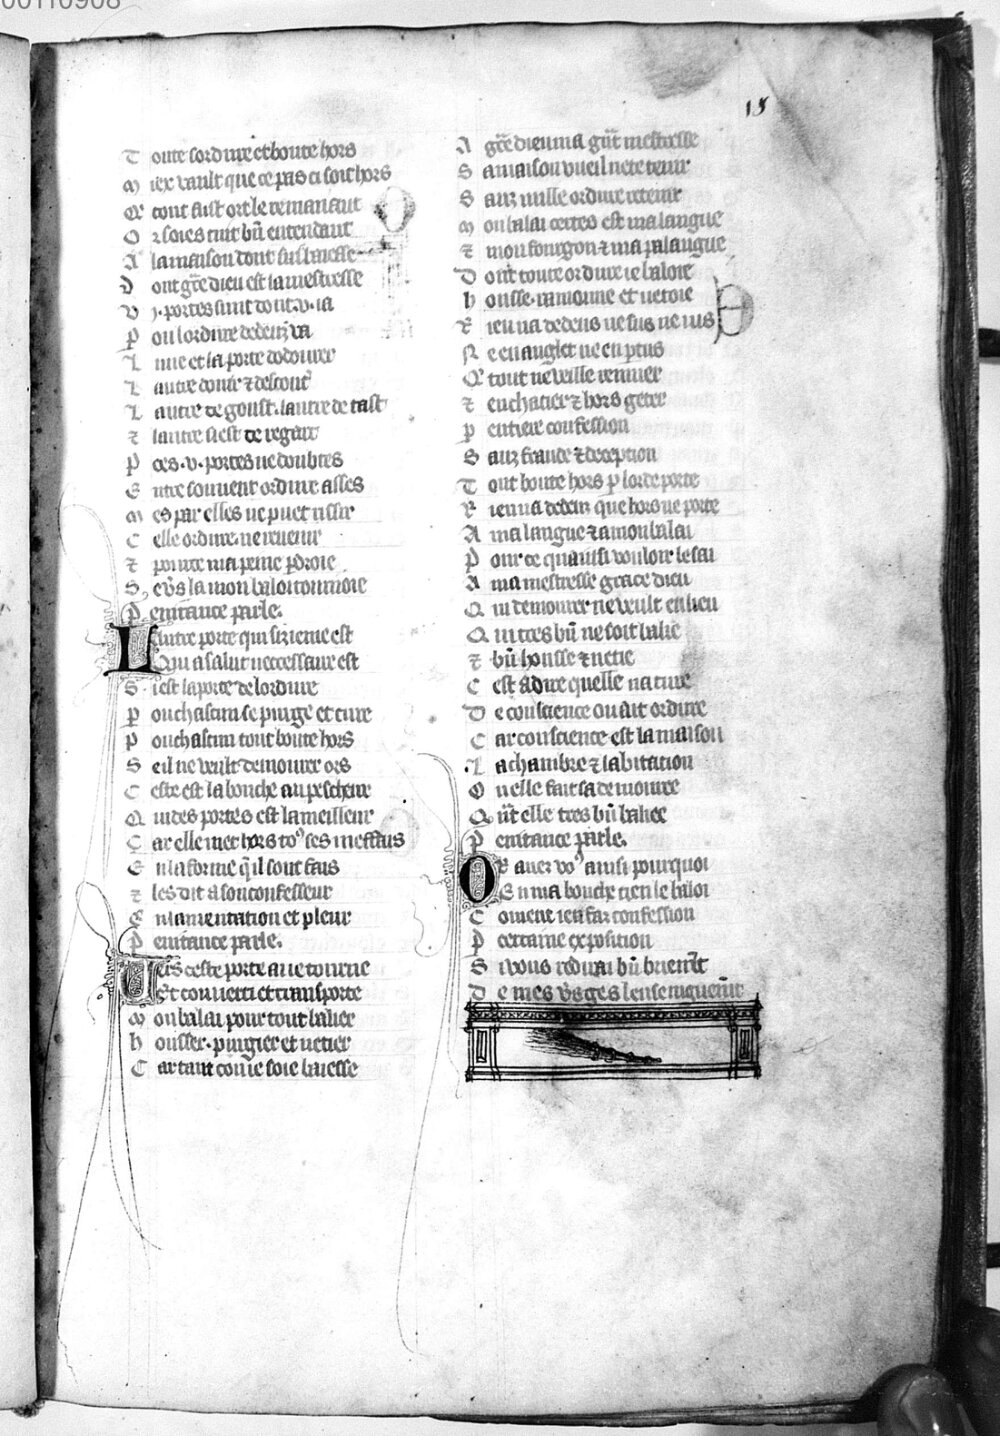 00110908
15
Toute lordure et boute hors
Miex vault que ce pas ci soit hors
Que tout aust ort le remanant
Or soies tuit bn̄ entendant
A la maison dont suis baiesse
Dont gr̄ce dieu est la mestresse
.v. portes sunt dont .v. ia
Par ou lordure dedenz va
Lune est la porte dodourer
Lautre douir ⁊ descouter
Lautre de goust. lautre de tast
⁊ lautre si est de regart
Par ces .v. portes ne doubtes
Entre souvent ordure asses
Mes par elles ne puet issir
Celle ordure ne revenir
⁊ pour ce ma peine perdroie
Se vers la mon baloi tournoie
Penitance parle.
Lautre porte qui sizieme est
Qui a salut neccessaire est
Si est la porte de lordure
Par ou chascun se purge et cure
Par ou chascun tout boute hors
Seil ne veult demourer ors
Ceste est la bouche au pescheur
Qui des portes est la meilleur
Car elle met hors toꝰ ses meffais
En la forme quil sont fais
⁊ les dit a son confesseur
En lamentation et pleur
Penitance parle.
Vers ceste porte ai ie tourne
Et converti et transporte
Mon balai pour tout balier
Housser. purgier et netier
Car tant con ie soie baiesse
A gr̄ce dieu ma gn̄t mestresse
Sa maison vueil nete tenir
Sanz nulle ordure retenir
Mon balai certes est ma langue
⁊ mon fourgon ⁊ ma palangue
Dont toute ordure ie baloie
Housse. ramonne et netoie
Rien na dedens ne sus ne ius
Ne en anglet ne en pertus
Que tout ne veille remuer
⁊ enchacier ⁊ hors geter
Par entiere confession
Sanz fraude ⁊ deception
Tout boute hors par lorde porte
Rien na dedenz que hors ne porte
A ma langue ⁊ a mon balai
Pour ce quainsi vouloir le sai
A ma mestresse grace dieu
Qui demourer ne veult en lieu
Qui tres bn̄ ne soit balie
⁊ bn̄ housse ⁊ netie
Cest a dire quelle na cure
De conscience ou ait ordure
Car conscience est la maison
La chambre ⁊ labitation
Ou elle fait sa demouree
Quant elle tres bn̄ baliee
Penitance parle.
Or avez voꝰ ainsi pourquoi
En ma bouche tien le baloi
Coment ien fas confession
Par certaine exposition
Si vous redirai bn̄ briement
De mes verges lenseignement